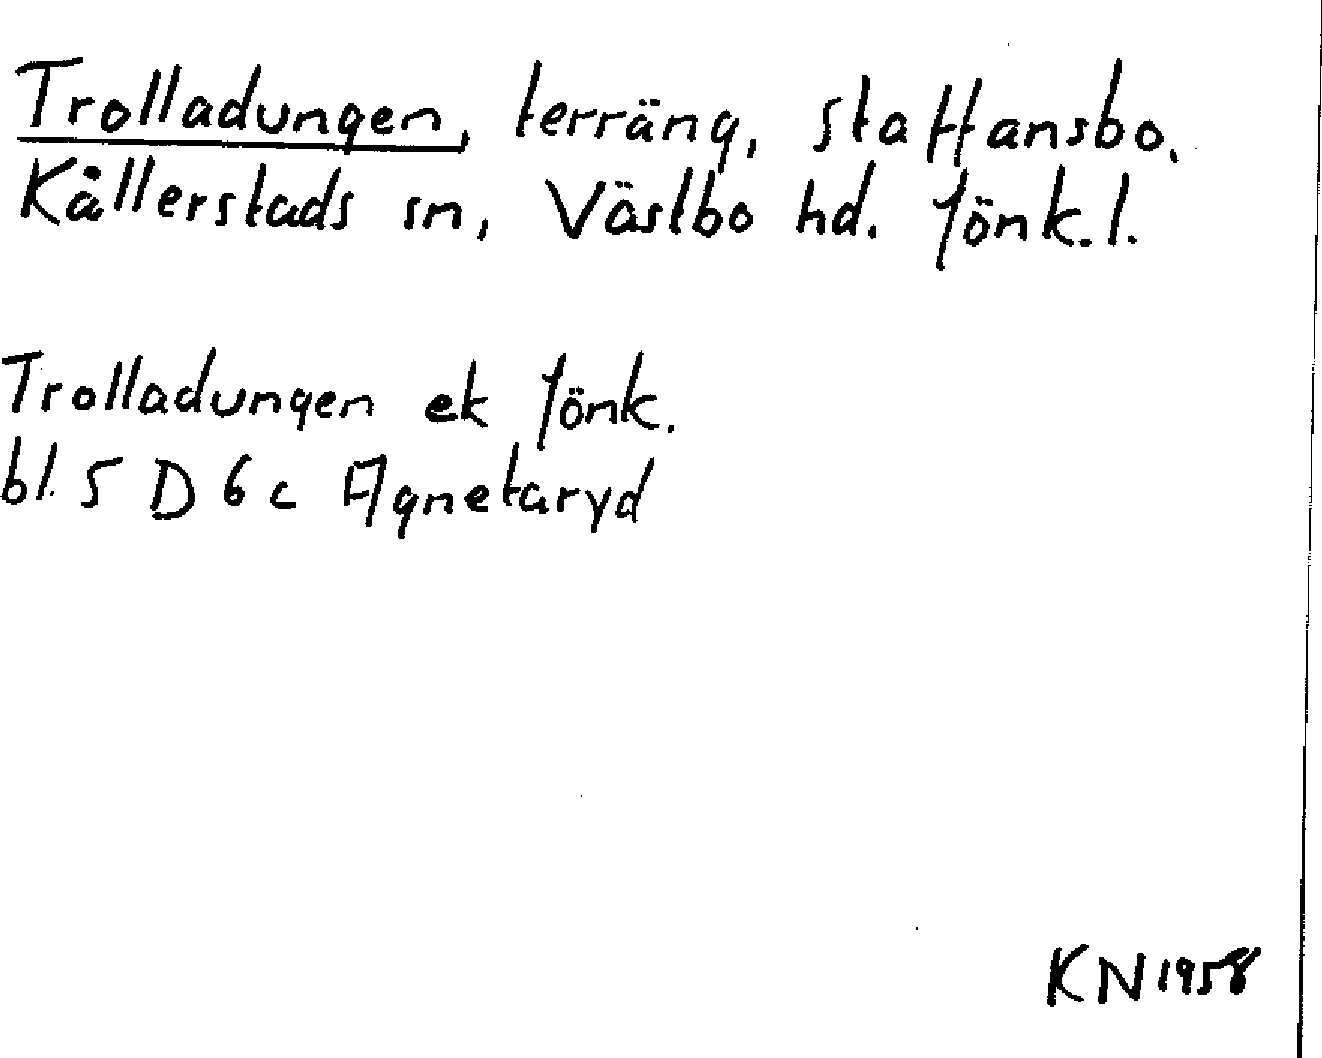 Trolladungen, terräng, Staffansbo,
Kållerstads sn, Västbo hd. Jönk.l.
Trolladungen ek Jönk.
bl. 5 D 6 c Agnetaryd
KN 1958